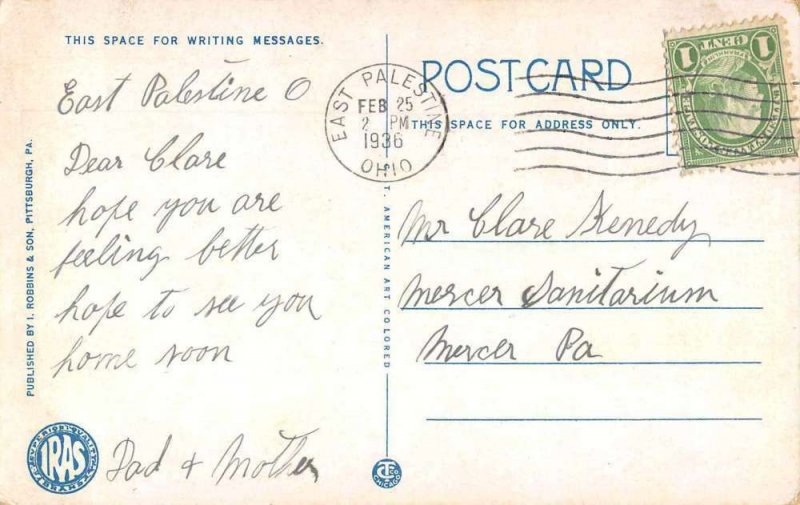 THIS SPACE FOR WRITING MESSAGES.
East Palestine O
Dear Clare
hope you are
feeling better
hope to see you
home soon
Dad + Mother
PUBLISHED BY I. ROBBINS & SON, PITTSBURGH, PA.
IRAS
EAST PALESTINE
FEB 25
2 PM
1936
OHIO
C.T. AMERICAN ART COLORED
CHICAGO
POST CARD
THIS SPACE FOR ADDRESS ONLY.
1 CENT 1
Mr Clare Kenedy
Mercer Sanitarium
Mercer Pa